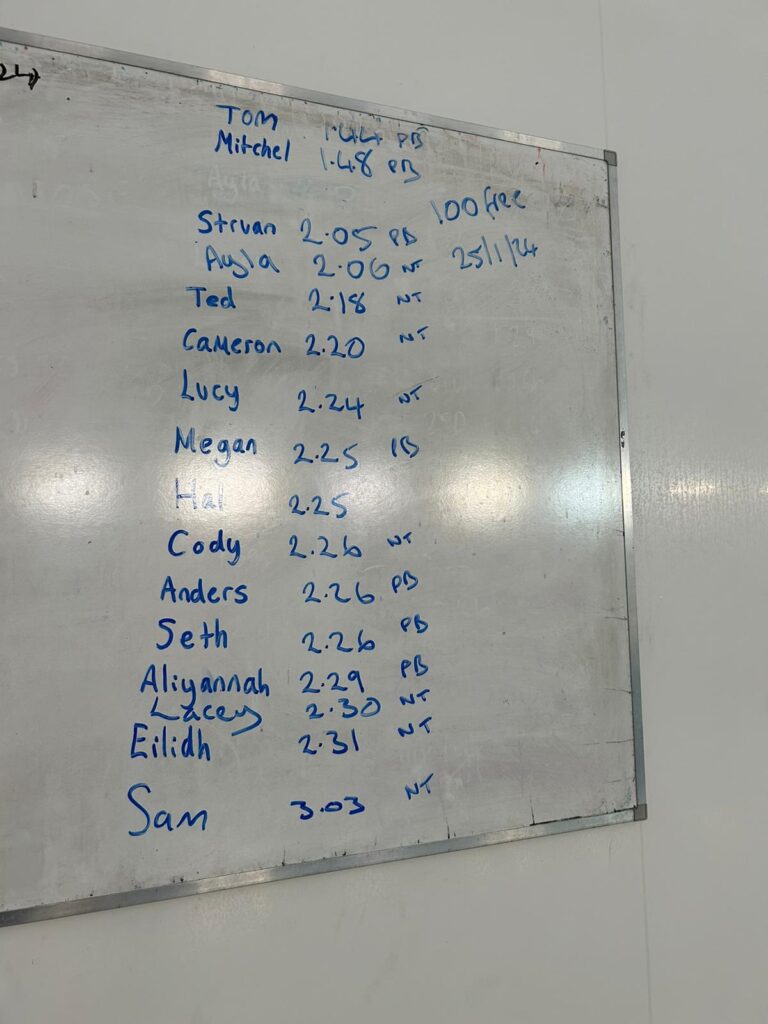 Tom 1.44 PB
Mitchel 1.48 PB
Ayla
100 free
Struan 2.05 PB
25/1/24
Ayla 2.06 NT
Ted 2.18 NT
Cameron 2.20 NT
Lucy 2.24 NT
Megan 2.25 PB
Hal 2.25
Cody 2.26 NT
Anders 2.26 PB
Seth 2.26 PB
Aliyannah 2.29 PB
Lacey 2.30 NT
Eilidh 2.31 NT
Sam 3.03 NT